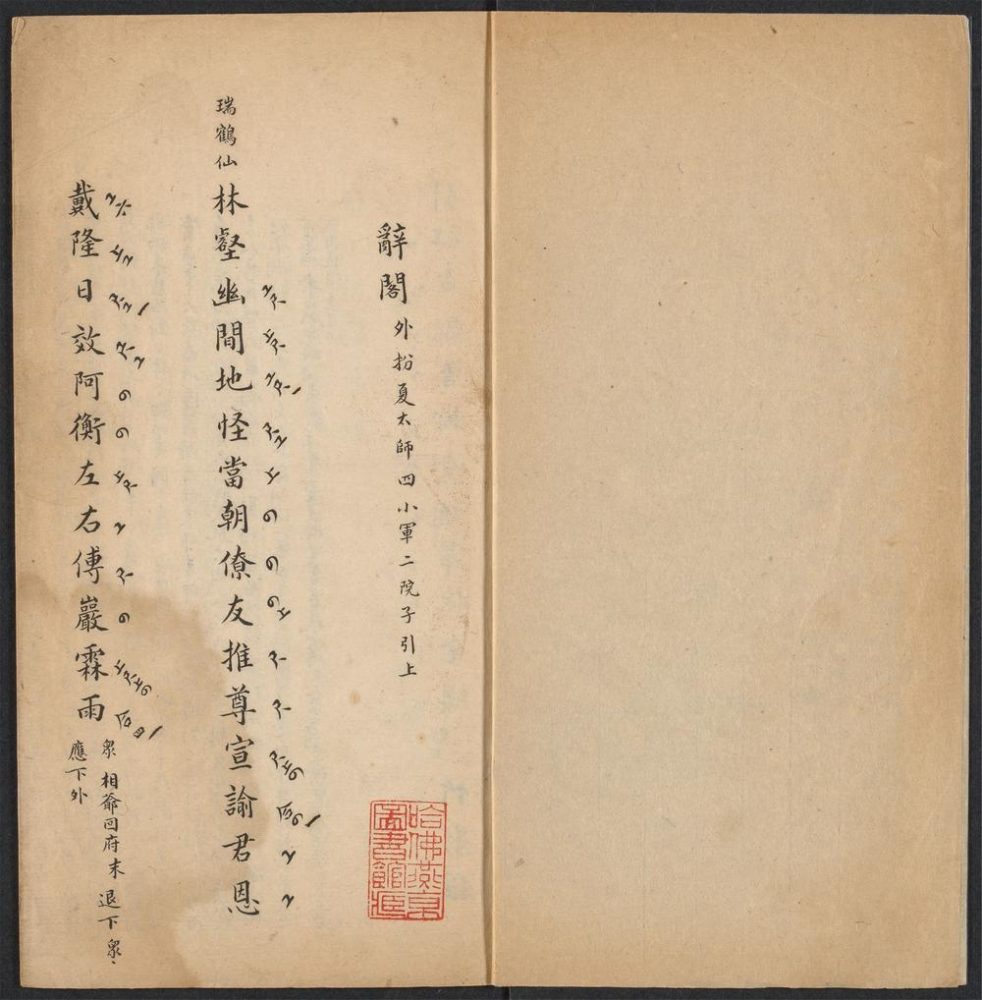 辭閣 外扮夏太師四小軍二院子引上
瑞鶴仙 林壑幽間地怪當朝僚友推尊宣諭君恩
戴隆日效阿衡左右傅巖霖雨 衆 相爺回府末 退下衆、
應下外
哈佛燕京
圖書館藏